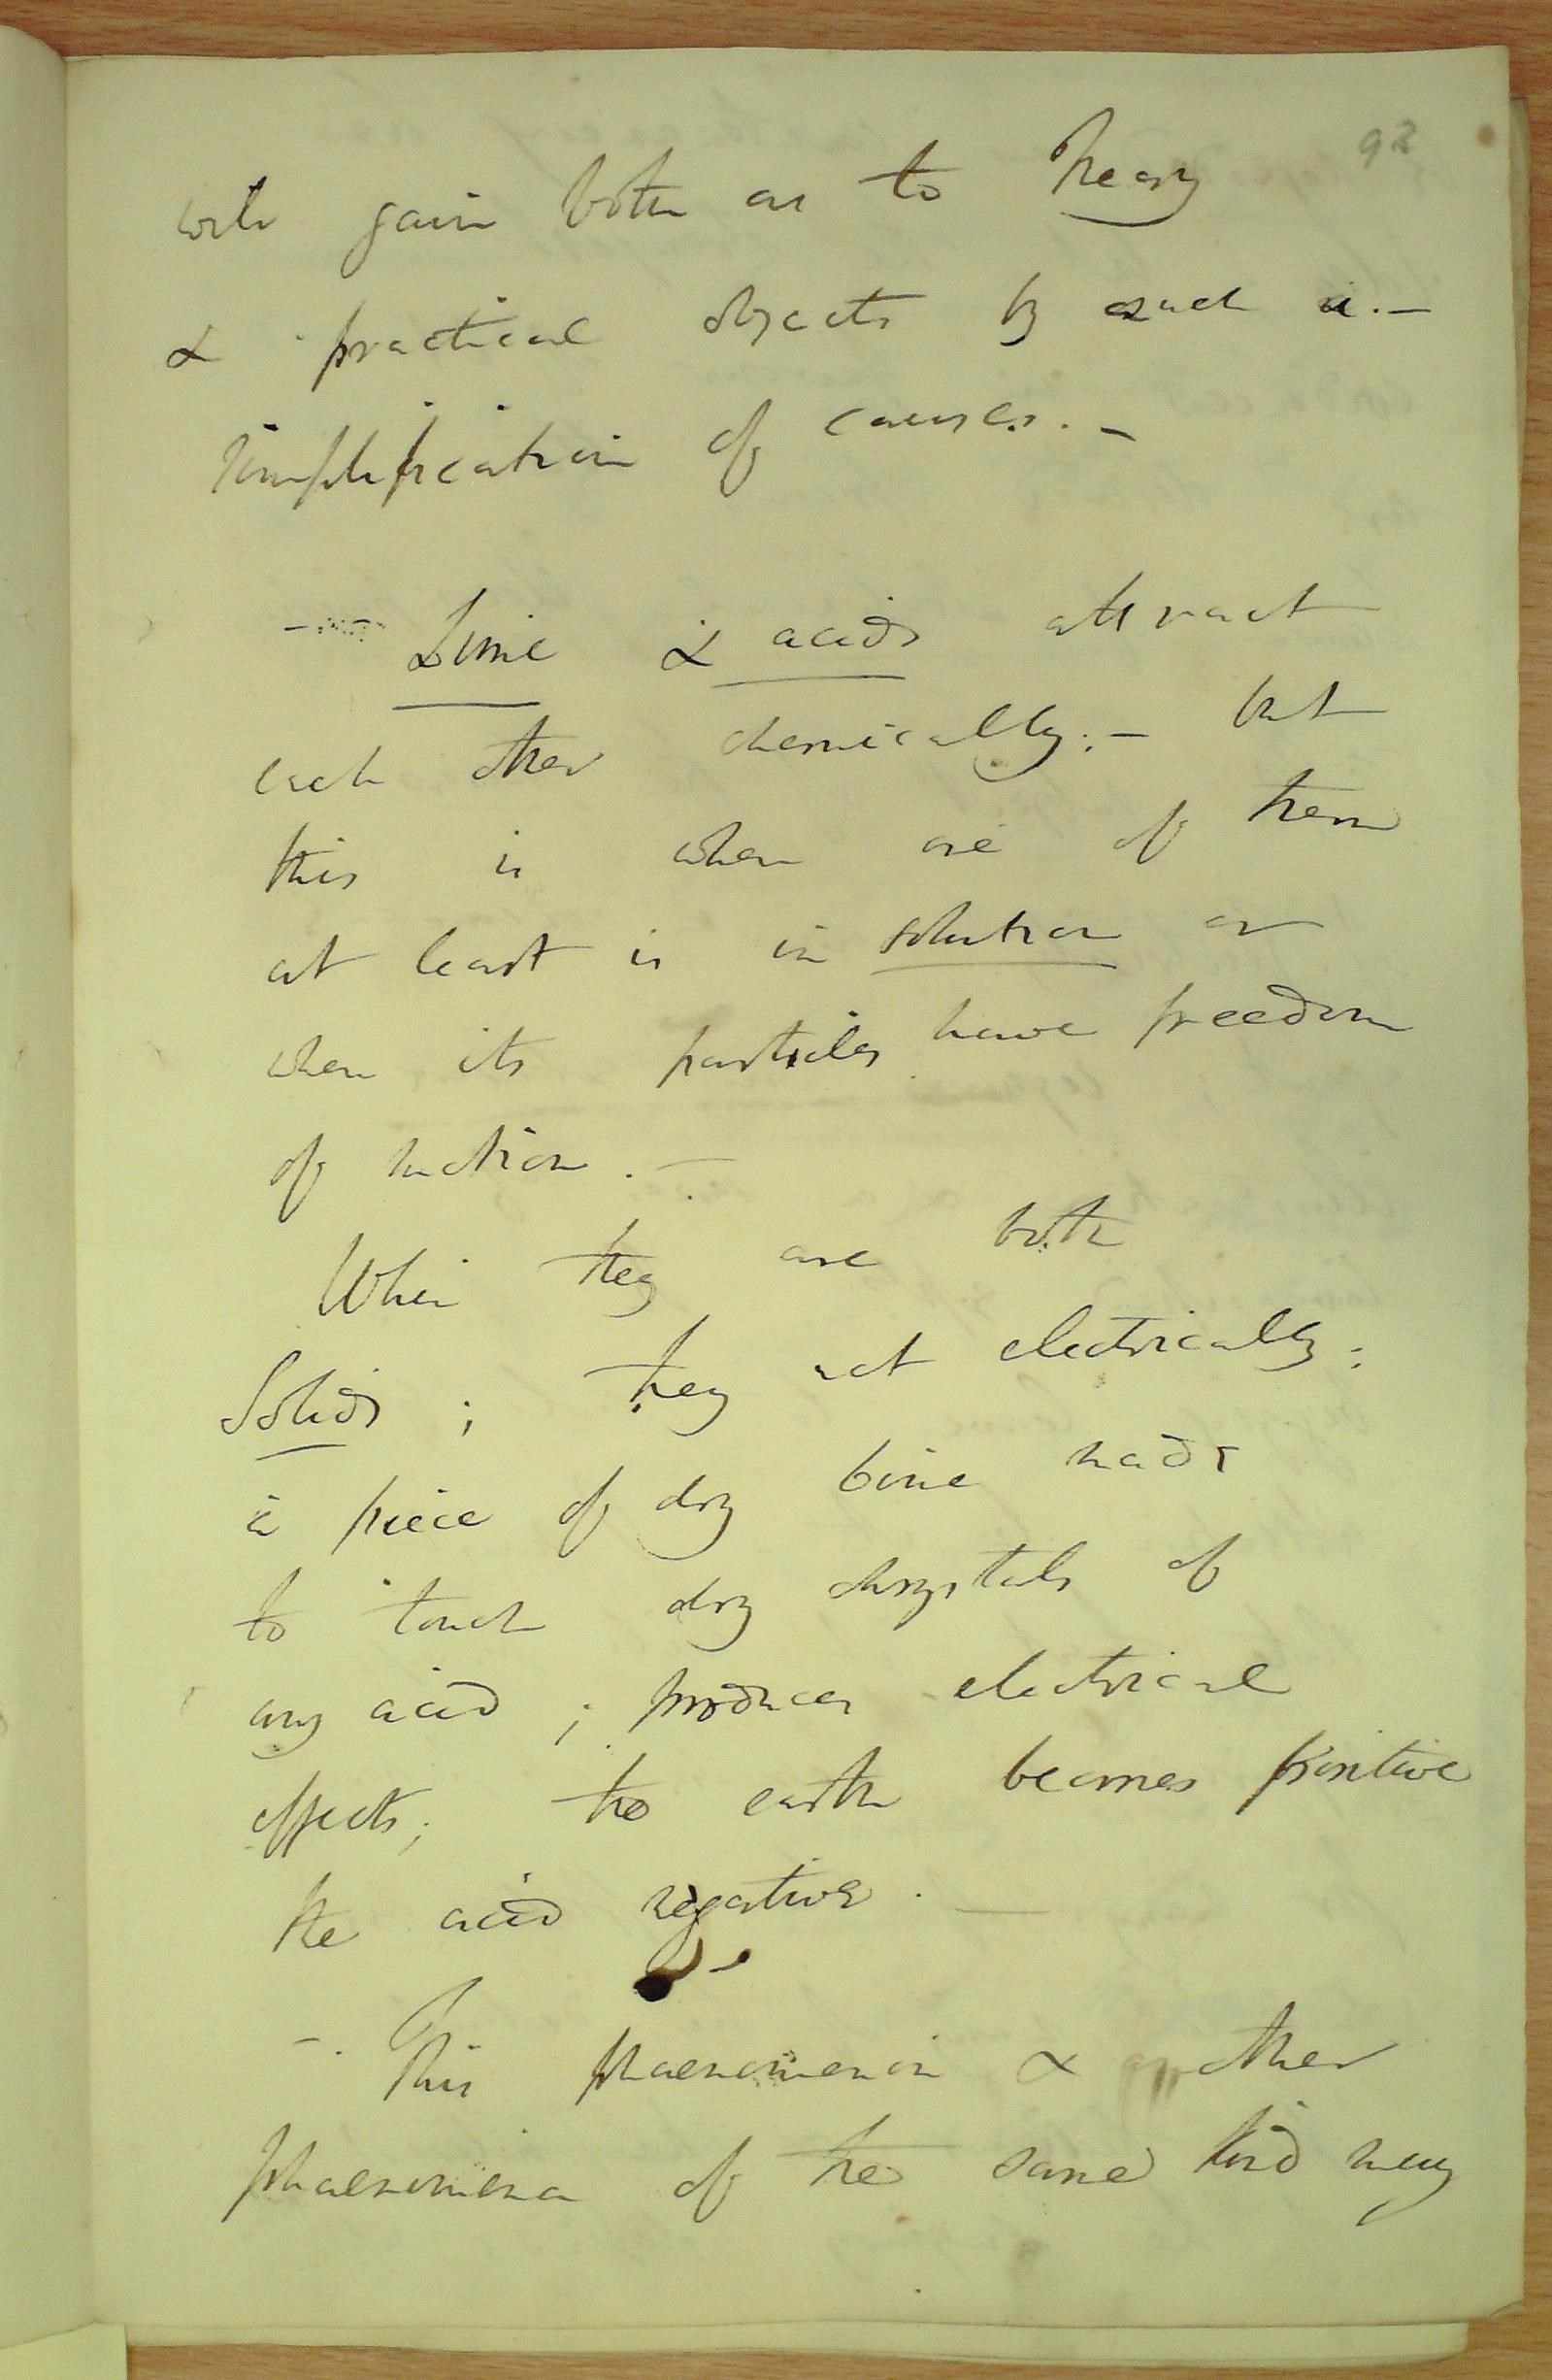 92
will gain both as to Theory
& practical objects by such a. —
simplification of causes. —
— Lime & acids attract
each other chemically; — but
this is when one of them
at least is in solution or
when its particles have freedom
of motion. —
When they are both
Solids; they act electrically:
a piece of dry lime made
to touch dry chrystals of
any acid; produces electrical
effects; the earth becomes positive
the acid negative. —
—. This phaenomenon & other
phaenomena of the same kind may